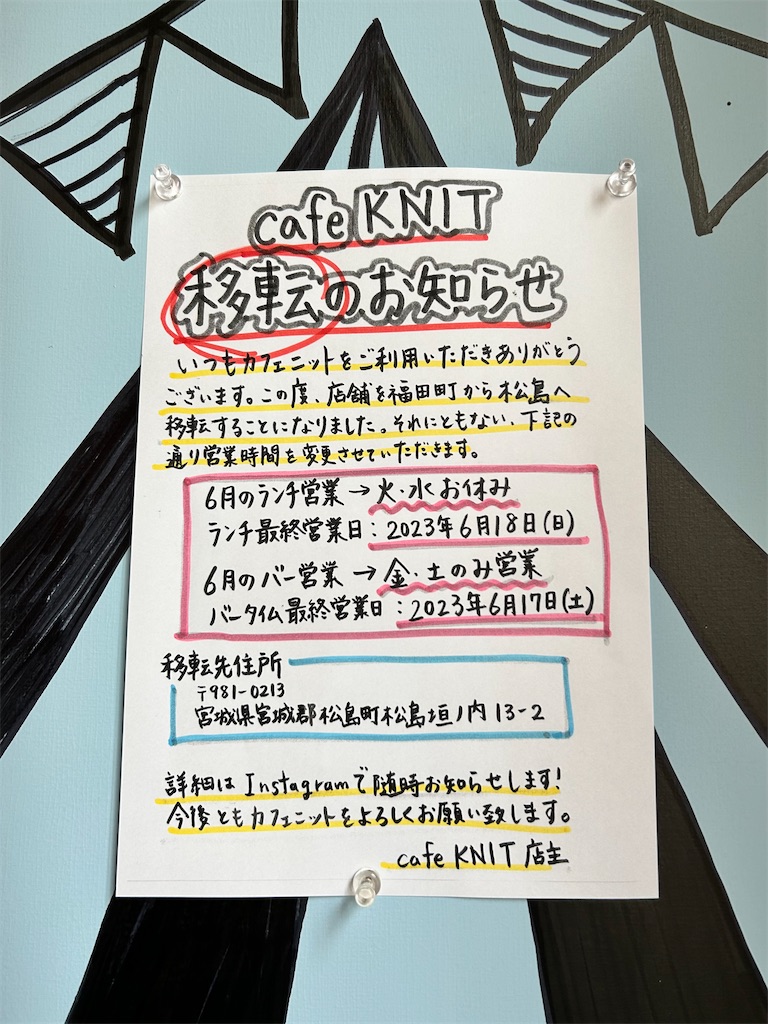 cafe KNIT
移転のお知らせ
いつもカフェニットをご利用いただきありがとう
ございます。この度、店舗を福田町から松島へ
移転することになりました。それにともない、下記の
通り営業時間を変更させていただきます。
6月のランチ営業→火・水お休み
ランチ最終営業日：2023年6月18日(日)
6月のバー営業→金・土のみ営業
バータイム最終営業日：2023年6月17日(土)
移転先住所
〒981-0213
宮城県宮城郡松島町松島垣ノ内13-2
詳細はInstagramで随時お知らせします!
今後ともカフェニットをよろしくお願い致します。
cafe KNIT 店主